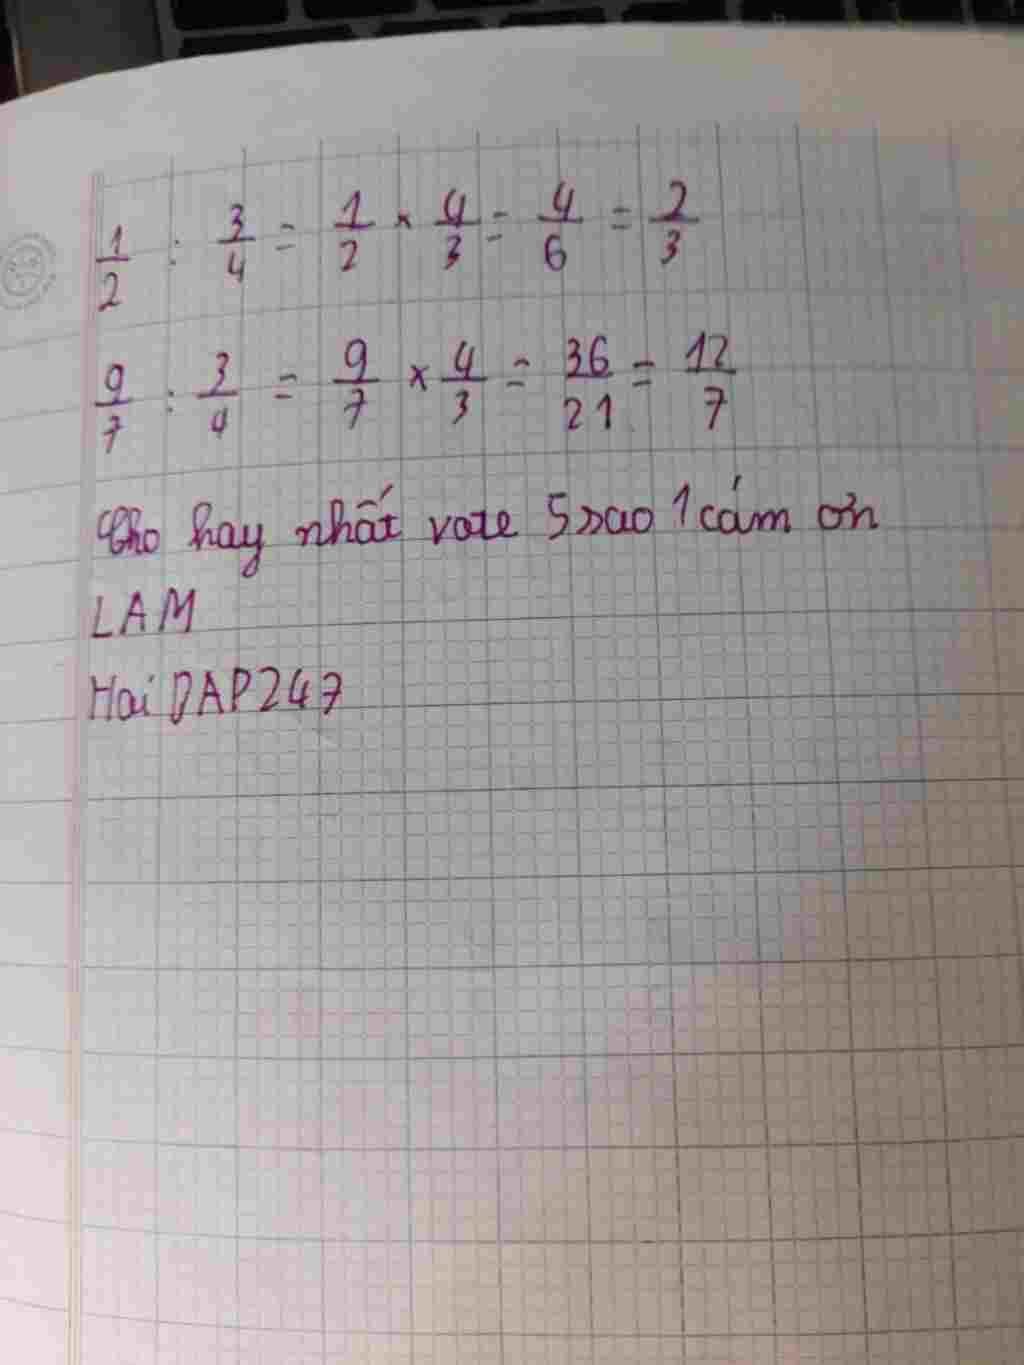 1/2 : 3/4 = 1/2 × 4/3 = 4/6 = 2/3
9/7 : 3/4 = 9/7 × 4/3 = 36/21 = 12/7
Cho hay nhất vote 5 sao 1 cám ơn
LAM
Hoi DAP247